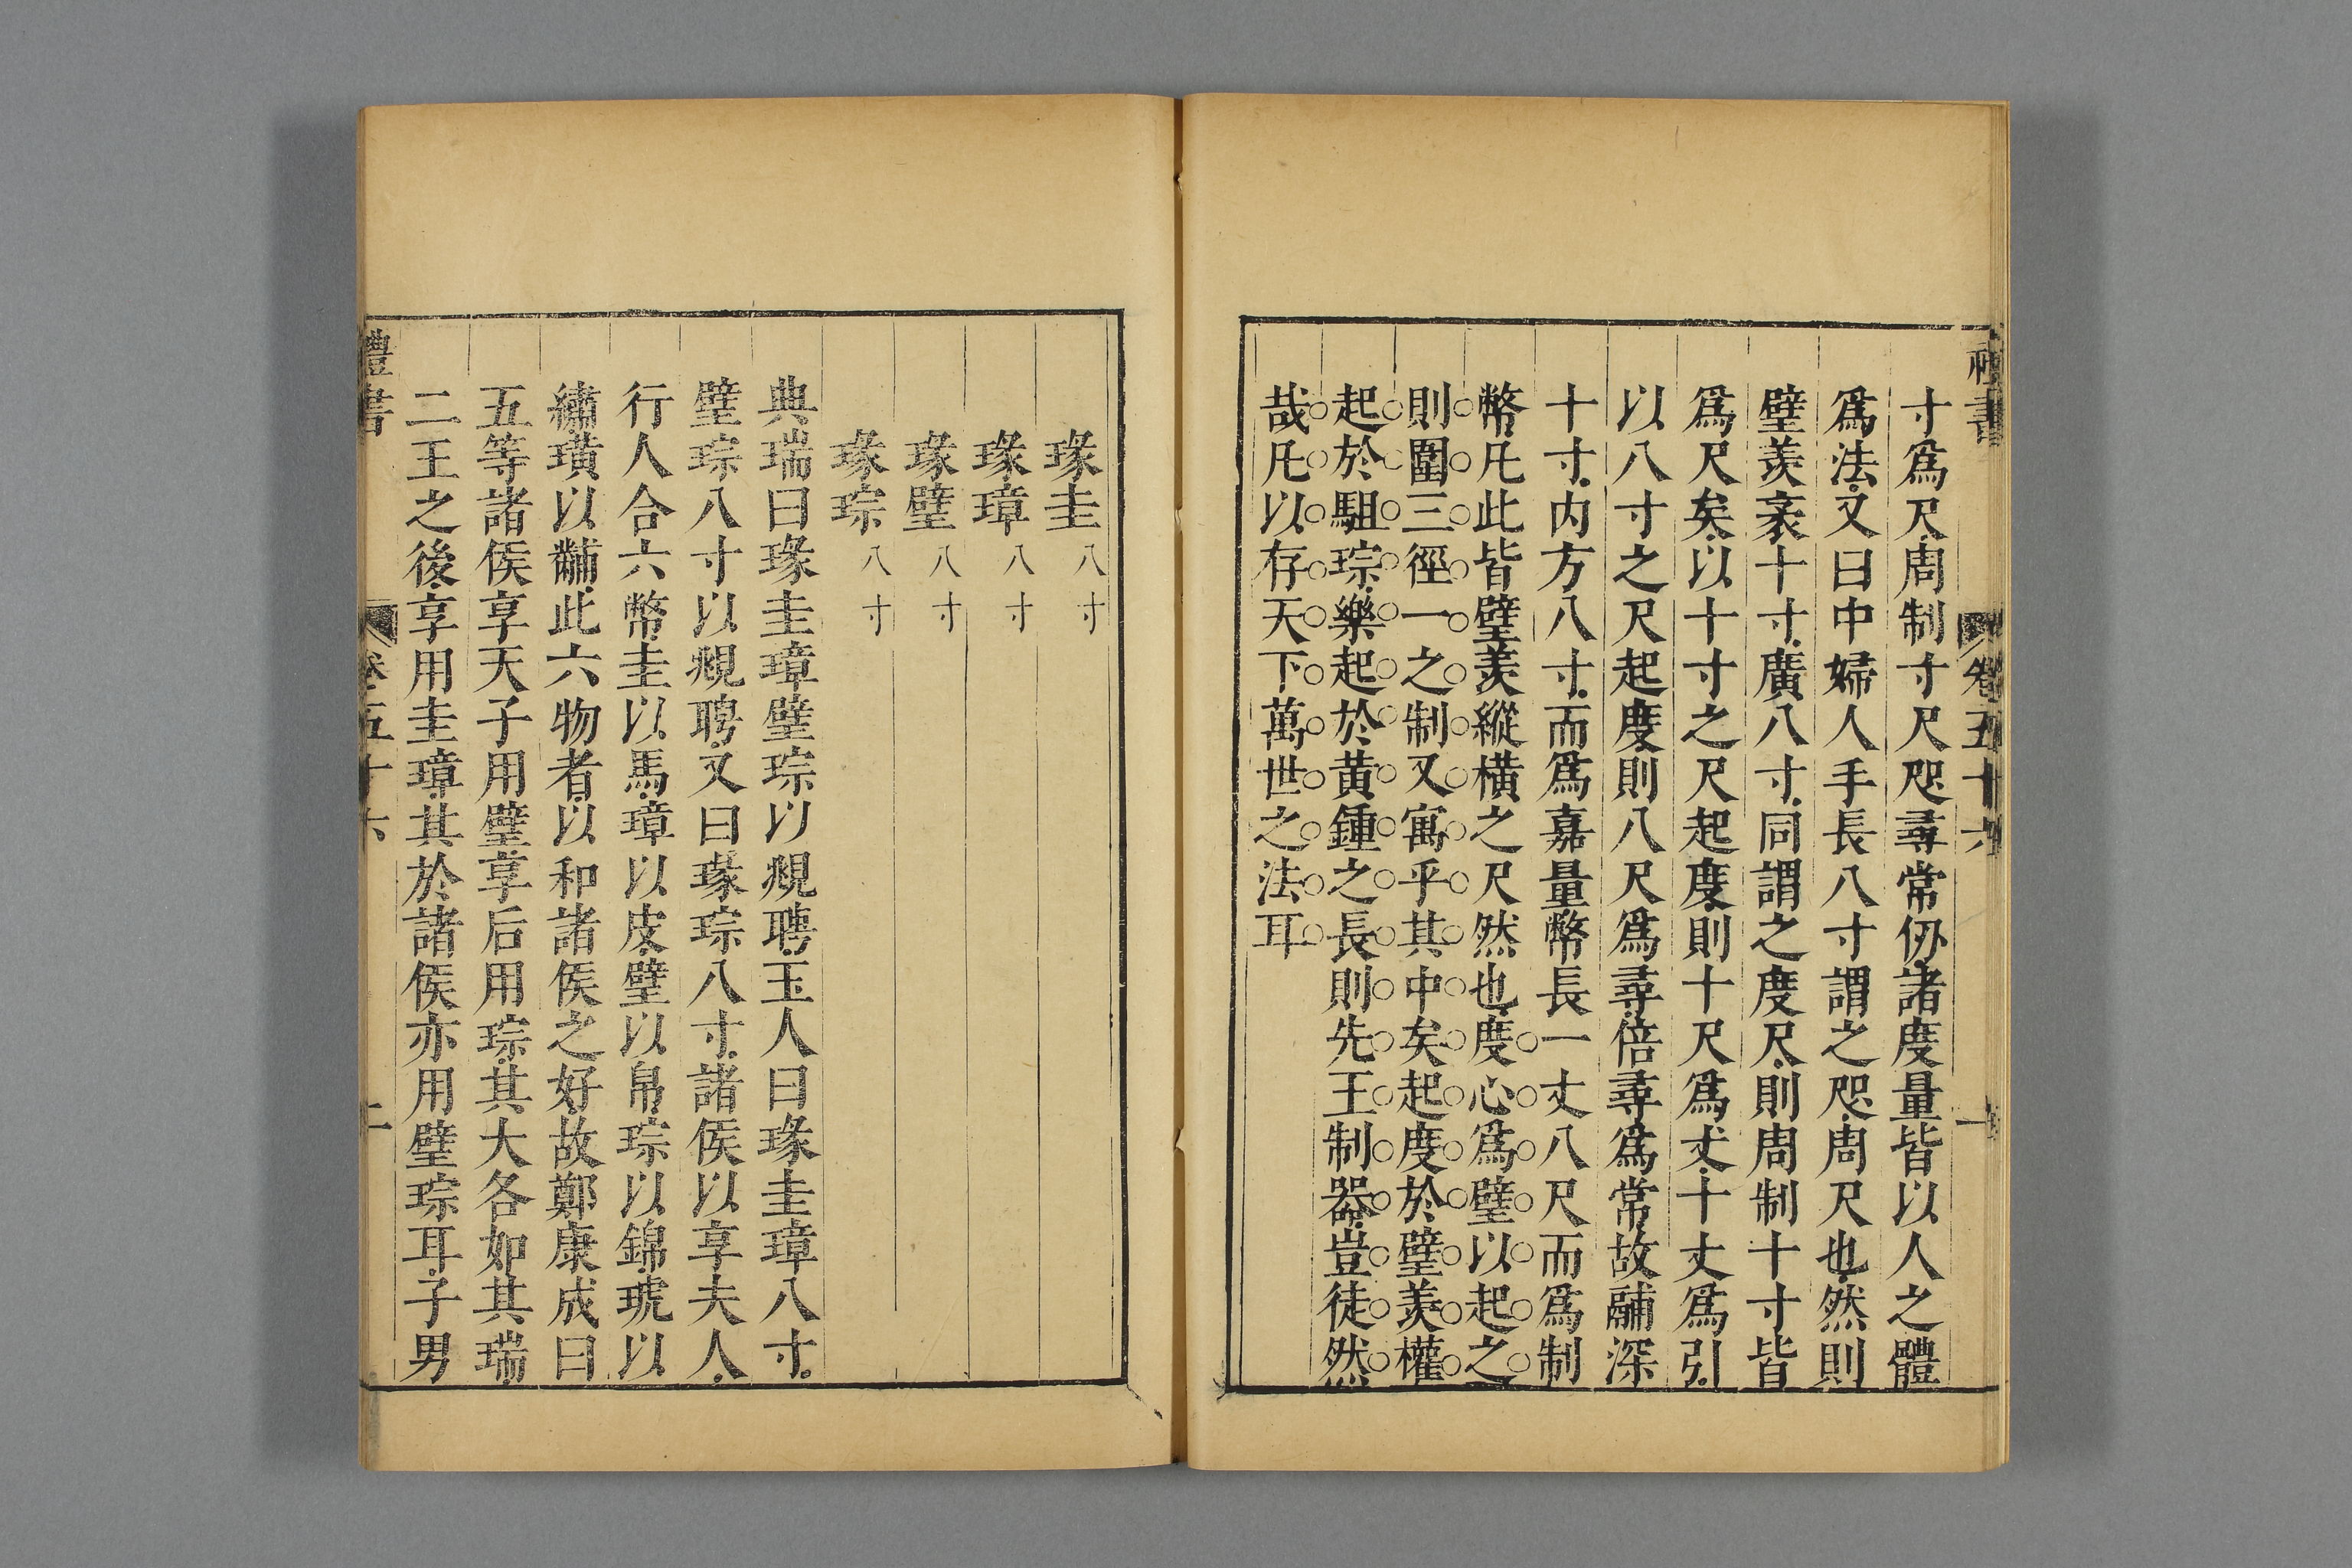 禮書 卷五十六 一
寸爲尺周制寸尺咫尋常仞諸度量皆以人之體
爲法又曰中婦人手長八寸謂之咫周尺也然則
璧羨袤十寸廣八寸同謂之度尺則周制十寸皆
爲尺矣以十寸之尺起度則十尺爲丈十丈爲引
以八寸之尺起度則八尺爲尋倍尋爲常故鬴深
十寸内方八寸而爲嘉量幣長一丈八尺而爲制
幣凡此皆璧羨縱橫之尺然也度必爲璧以起之
則圍三徑一之制又寓乎其中矣起度於璧羨權
起於駔琮樂起於黄鍾之長則先王制器豈徒然
哉凡以存天下萬世之法耳
瑑圭八寸
瑑璋八寸
瑑璧八寸
瑑琮八寸
典瑞曰瑑圭璋璧琮以覜聘玉人曰瑑圭璋八寸
璧琮八寸以覜聘又曰瑑琮八寸諸侯以享夫人
行人合六幣圭以馬璋以皮璧以帛琮以錦琥以
繡璜以黼此六物者以和諸侯之好故鄭康成曰
五等諸侯享天子用璧享后用琮其大各如其瑞
二王之後享用圭璋其於諸侯亦用璧琮耳子男
禮書 卷五十六 二